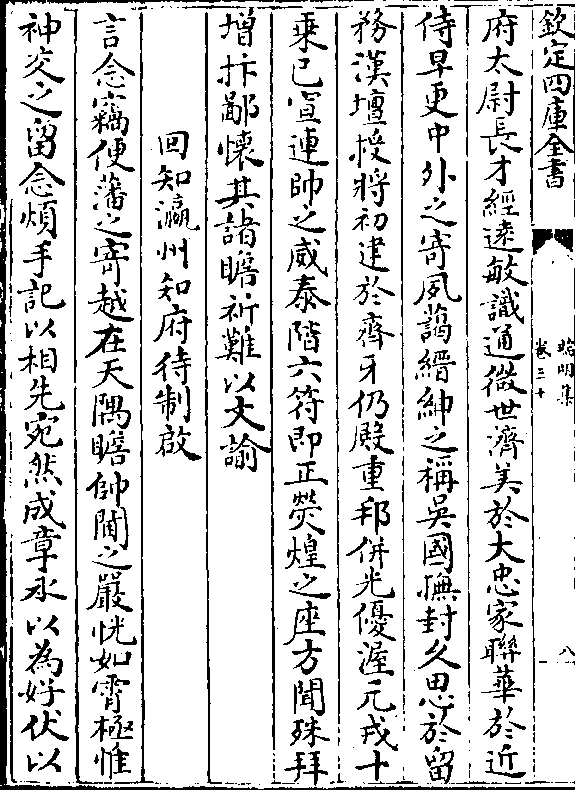 欽定四庫全書
臨明集
卷三十
八
府太尉長才經遠敏識通微世濟美於大忠家聯華於近
侍早更中外之寄夙藹縉紳之稱吳國憮封久思於留
務漢壇授將初建於齊牙仍殿重邦併光優渥元戎十
乘已宣連帥之威泰階六符即正熒煌之座方聞殊拜
增抃鄙懷其諸瞻祈難以文諭
回知瀛州知府待制啟
言念竊便藩之寄越在天隅瞻帥閫之嚴恍如霄極惟
神交之留念煩手記以相先宛然成章永以為好伏以